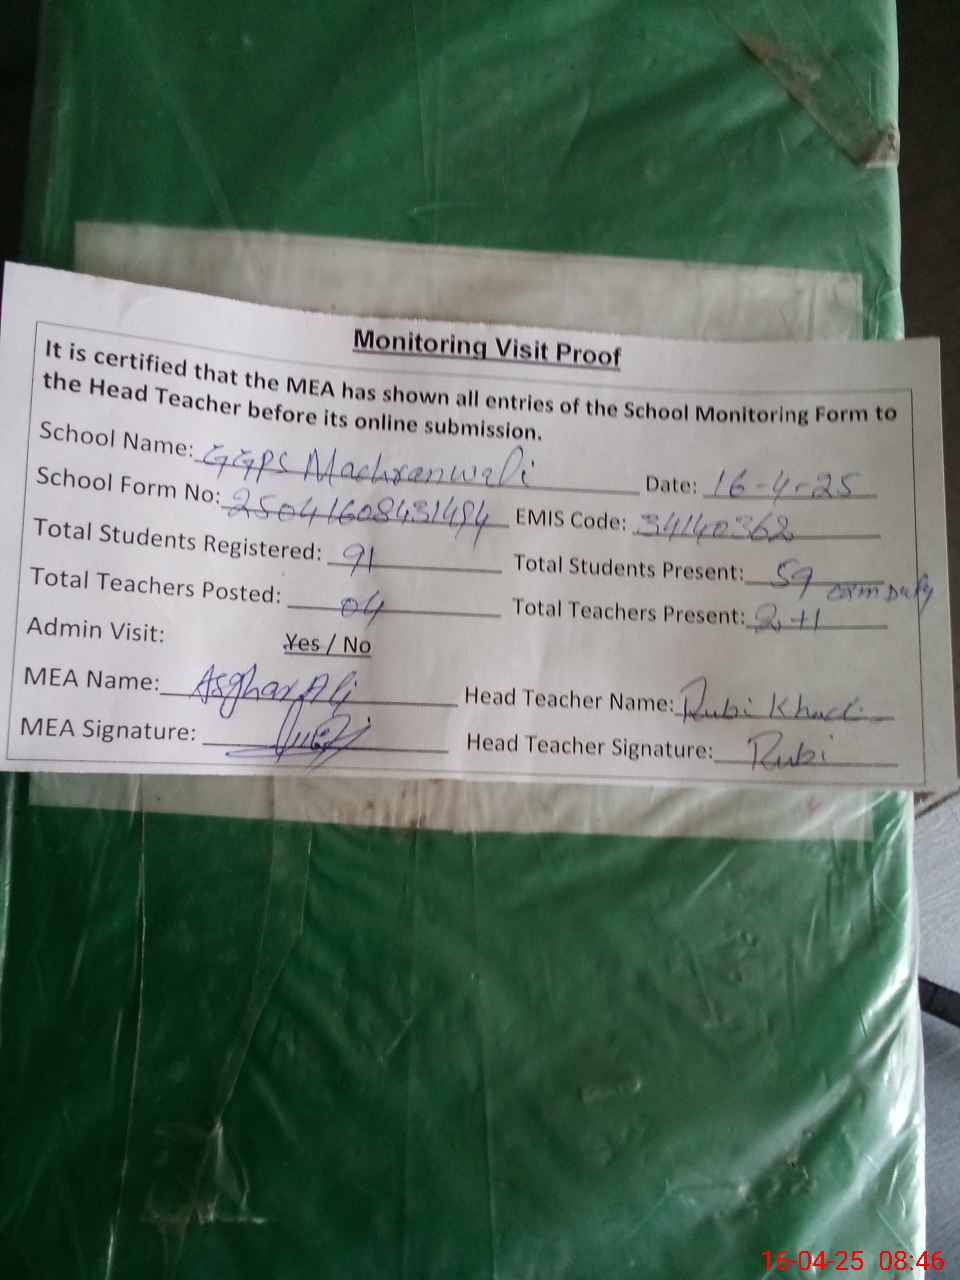 Monitoring Visit Proof
It is certified that the MEA has shown all entries of the School Monitoring Form to
the Head Teacher before its online submission.
School Name: GGPS Machranwali Date: 16-4-25
School Form No: 25041608431494 EMIS Code: 34140362
Total Students Registered: 91 Total Students Present: 59
Total Teachers Posted: 04 Total Teachers Present: 2+1 exam Duty
Admin Visit: Yes / No
MEA Name: Asghar Ali Head Teacher Name: Rubi
MEA Signature: Head Teacher Signature: Rubi
16-04-25 08:46